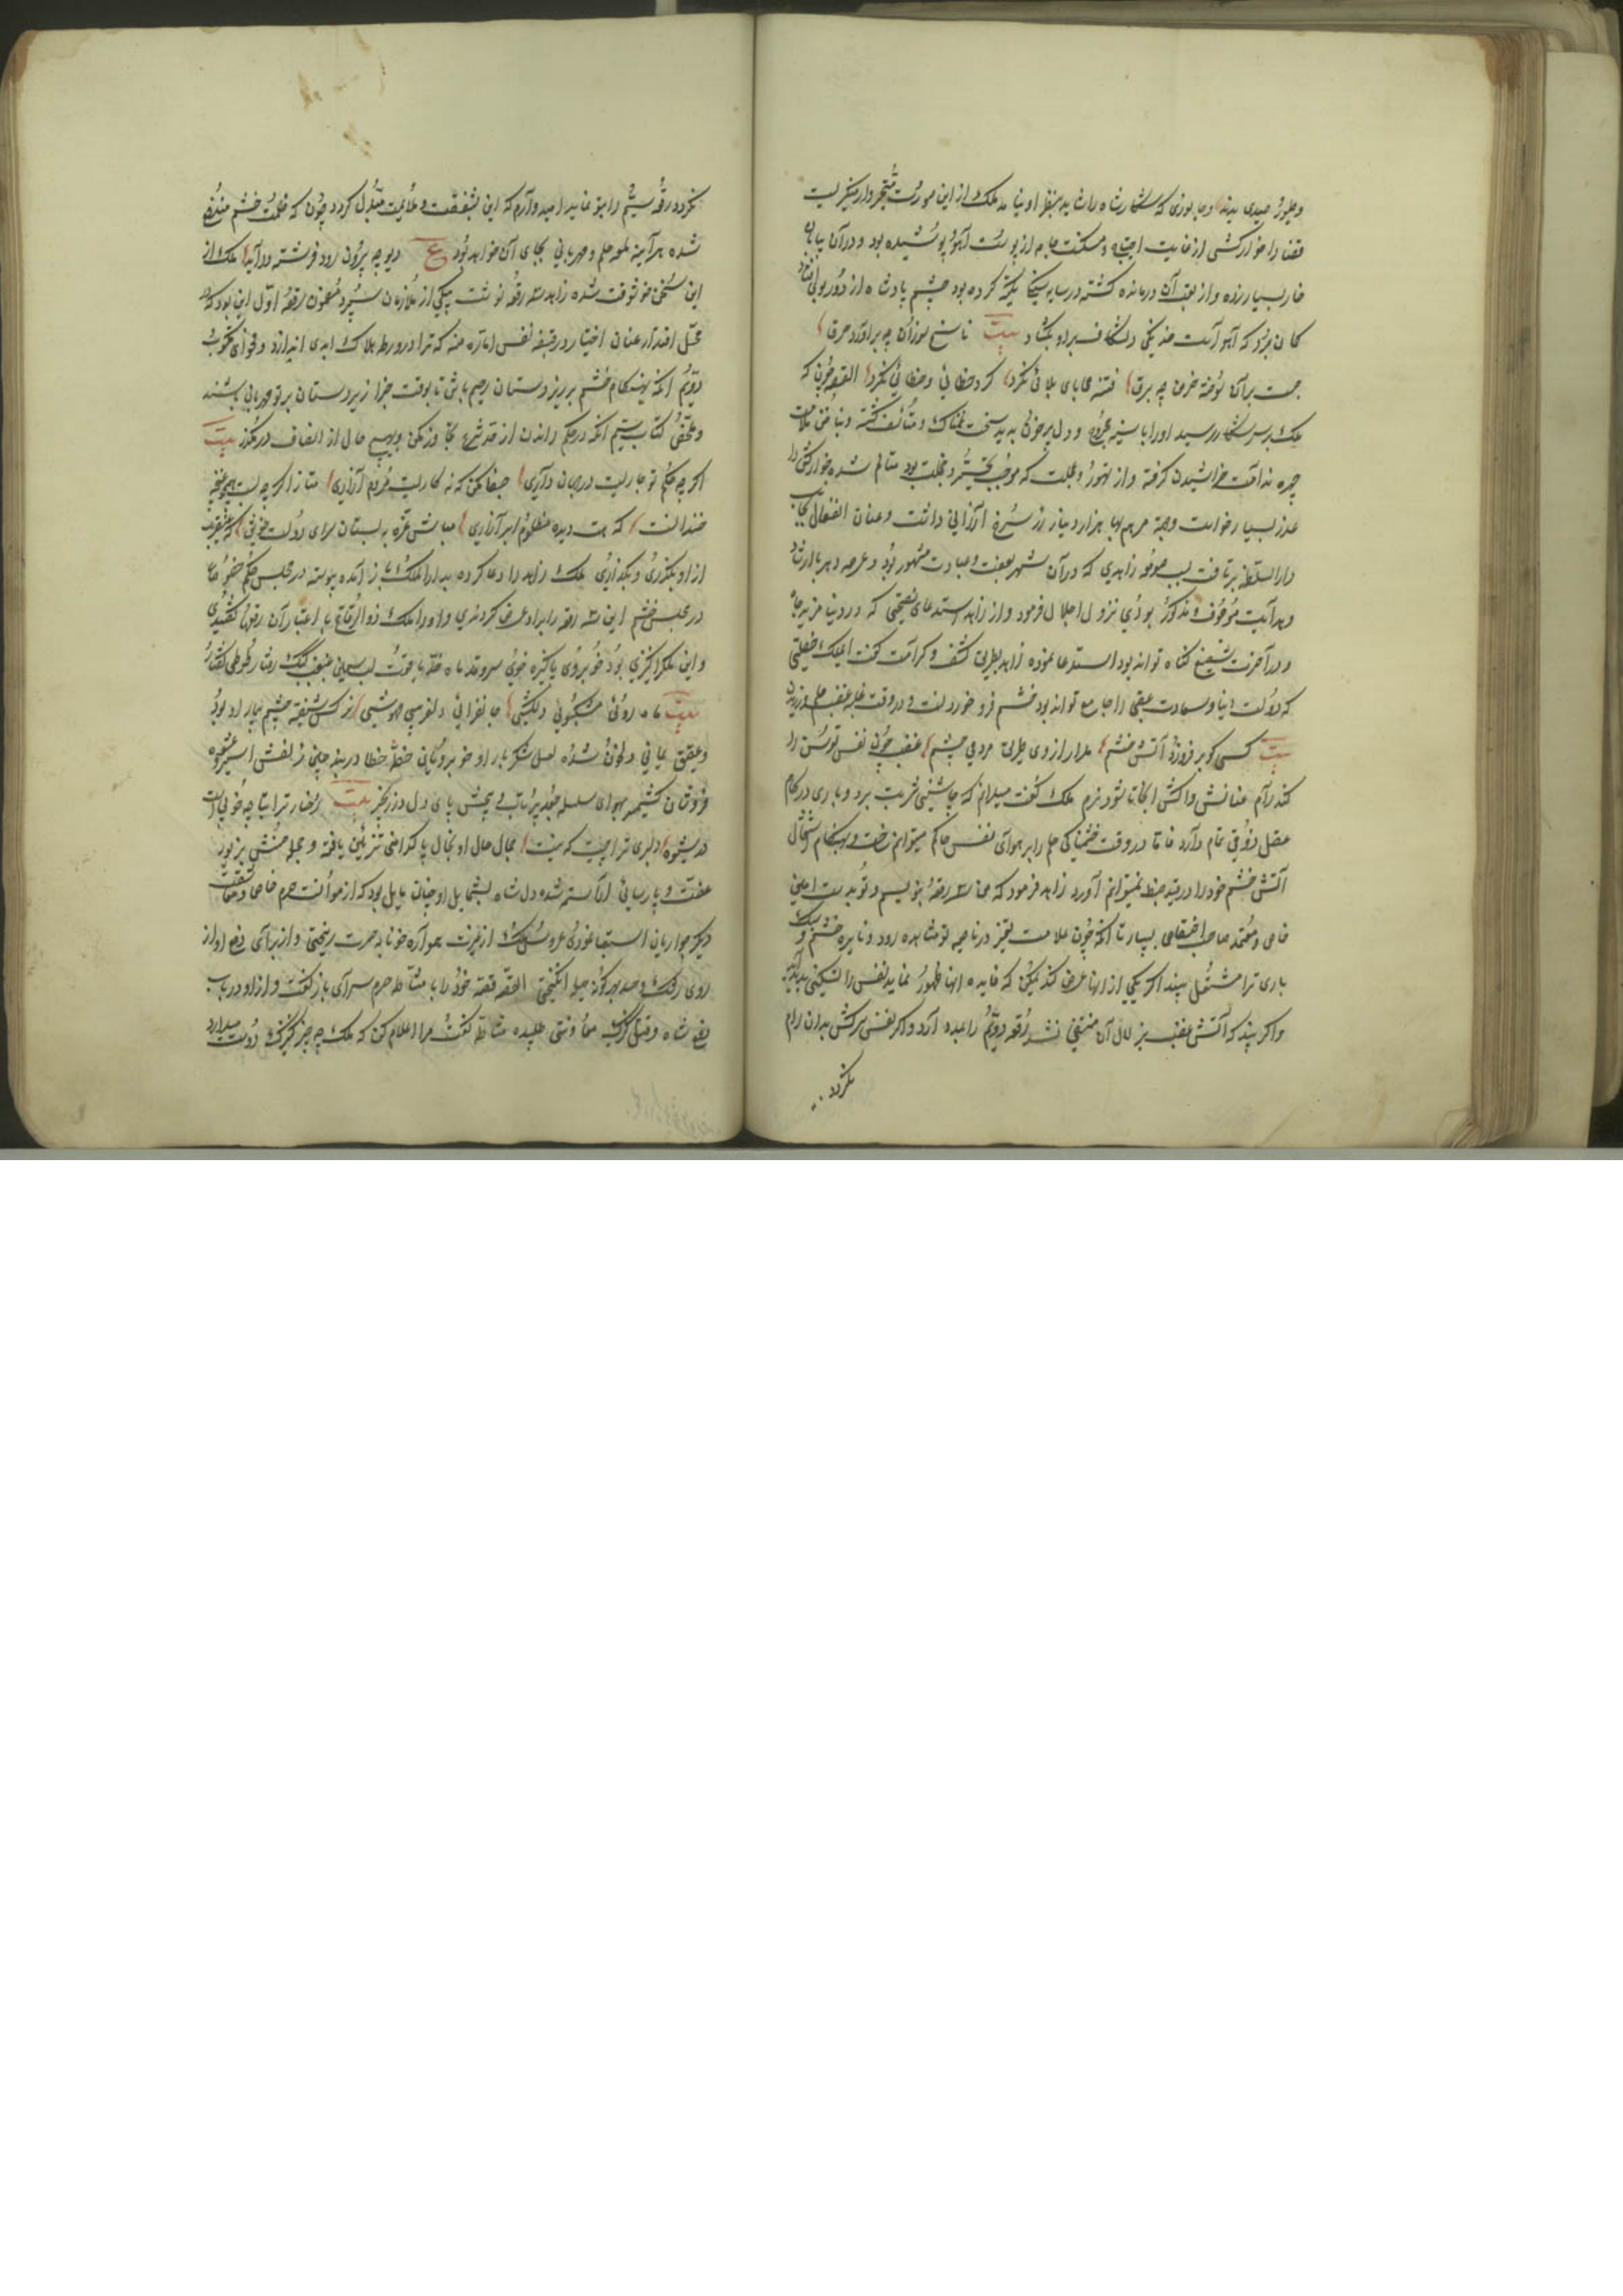 وطیور صیدی بدید وجانوری که شکار شاه را شاید بنظر او نیامد ملک از این صورت متحیر وار مینگریست
قضا را خوارکشی از غایت احتیاج و مسکنت جامه از پوست آهو پوشیده بود و در آن بیابان
خار بسیار زده و از تعب آن درمانده گشته در سایه سنگی تکیه کرده بود چشم پادشاه از دور بوی افتاد
گمان برد که آهو است خدنگی دلشکاف بر او بگشاد بیت ناسخ سوزان چه برآورد حرق
جست بر آن سوخته خرمن چه برق فتنه محابای بلائی نکرد کرد خطائی و خطائی نکرد القصه چون که
ملک بر سر شکار رسید او را با سینه مجروح و دل پرخون بدید سخت غمناک و متأسف گشته و بناخن ملامت
چهره ندامت خراشیدن گرفته و از تهور و عجلت که موجب تحسر و خجلت بود متألم شده خوارکش را
عذر بسیار خواست و جهة مرهم بها هزار دینار زر سرخ ارزانی داشت و عنان انفعال بجانب
دار السلطنه برتافت بصومعه زاهدی که در آن شهر بعفت و عبادت مشهور بود و عرصه دهر بارشاد
و هدایت موصوف و مذکور بودی نزول اجلال فرمود و از زاهد استدعای نصیحتی که در دنیا مزید جاه
و در آخرت شفیع گناه تواند بود استدعا نموده زاهد بطریق کشف و کرامت گفت ایملک خصلتی
که دولت دنیا و سعادت عقبی را جامع تواند بود خشم فرو خوردنست و در وقت غلبه غضب حلم ورزیدن
بیت کسی کو بر فروزد آتش خشم مدار از وی طریق مردمی چشم غضب چون نفس توسن را
کند رام عنانش واکش اینجا تا شود نرم ملک گفت میدانم که چاشنی شربت بردباری در کام
عقل ذوقی تمام دارد فاما در وقت خشمناکی حلم را بر هوای نفس حاکم نمیتوانم ساخت و بهنگام اشتعال
آتش خشم خود را در قید ضبط نمیتوانم آورد زاهد فرمود که من سه رقعه بنویسم و تو بدست امینی
خاص و معتمد صاحب اختصاص بسپار تا آنکه چون علامت تغیر در ناصیه تو مشاهده رود و نایره خشم و سبک
باری ترا مشتعل بیند اگر یکی از اینها عرض کند یمکن که فایده اینها ظهور نماید نفس را تسکینی پدید آید
و اگر بیند که آتش غضب بزلال آن منتفی نشد رقعه دویم را عبده آرد و اگر نفس سرکش بدان رام
نگردد
نگردد رقعه سیم را بتو نماید امیدوارم که این بشفقت و ملایمت مبدل گردد چون که ظلمت خشم مندفع
شده هر آینه لمعه حلم و مهربانی بجای آن خواهد بود ع دیو چه بیرون رود فرشته درآید ملک از
این سخن خوشوقت شده زاهد سه رقعه نوشت بیکی از ملازمان سپرد مضمون رقعه اول این بود که در
محل اقتدار عنان اختیار در قبضه نفس اماره منه که ترا در ورطه هلاک ابدی اندازد و فحوای مکتوب
دویم آنکه بهنگام خشم بر زیردستان رحیم باش تا بوقت جزا زبردستان بر تو مهربانی بخشند
و ملخص کتاب سیم آنکه در حکم راندن از حد شرع تجاوز مکن و بهیچ حال از انصاف در مگذر بیت
اگر چه حکم تو جاریست در جهان داری جفا مکن که نه کاریست مردم آزاری متاز اگر چه لبت همچو غنچه
خندانست که هست دیده مظلوم ابر آزاری مباش غره به بستان سرای دولت خویش که عنقریب
از او بگذری و بگذاری ملک زاهد را دعا کرده بدار الملک باز آمده پیوسته در مجلس حکم حضور عام
در مجلس خشم این سه رقعه را بر او عرض کردندی و او را ملک ذو الرقاع باعتبار آن رقعها گفتندی
و این ملک را کنیزی بود خوبروی پاکیزه خوی سرو قد ماه خد یاقوت لب سیمین غبغب کبک رفتار طوطی گفتار
بیت ماه روئی مشکبوئی دلکشی جانفزائی دلفریبی مهوشی نرگس شیفته چشم بیمار او بود
و عقیق یمانی دلخون شده لعل شکر بار او خوبرویان خطه خطا در بند چین زلفش اسیر و عشوه
فروشان کشمیر بهوای سلسله جعد پرتاب و پیچش پای دل در زنجیر بیت رخسار ترا بتا چه خوبی است
که نیست دلبری ترا چیست که نیست جمال حال او بخال پاکدامنی تزئین یافته و جمله حسنش بزیور
عفت و پارسائی آراسته شده دل شاه بشمایل او چنان مایل بود که از موانست حرم خاص و معاشقت
دیگر جواریان استبعاد نمودی عروس ملک از غیرت همواره خونابه حسرت ریختی و از برای دفع او از
روی رشک و حسد هر گونه حیله انگیختی القصه قصه خود را با مشاطه حرم سرای باز گفت و از او در باب
دفع شاه و قتل کنیزک معاونتی طلبیده مشاطه گفت مرا اعلام کن که ملک چه چیز کنیزک دوست میدارد